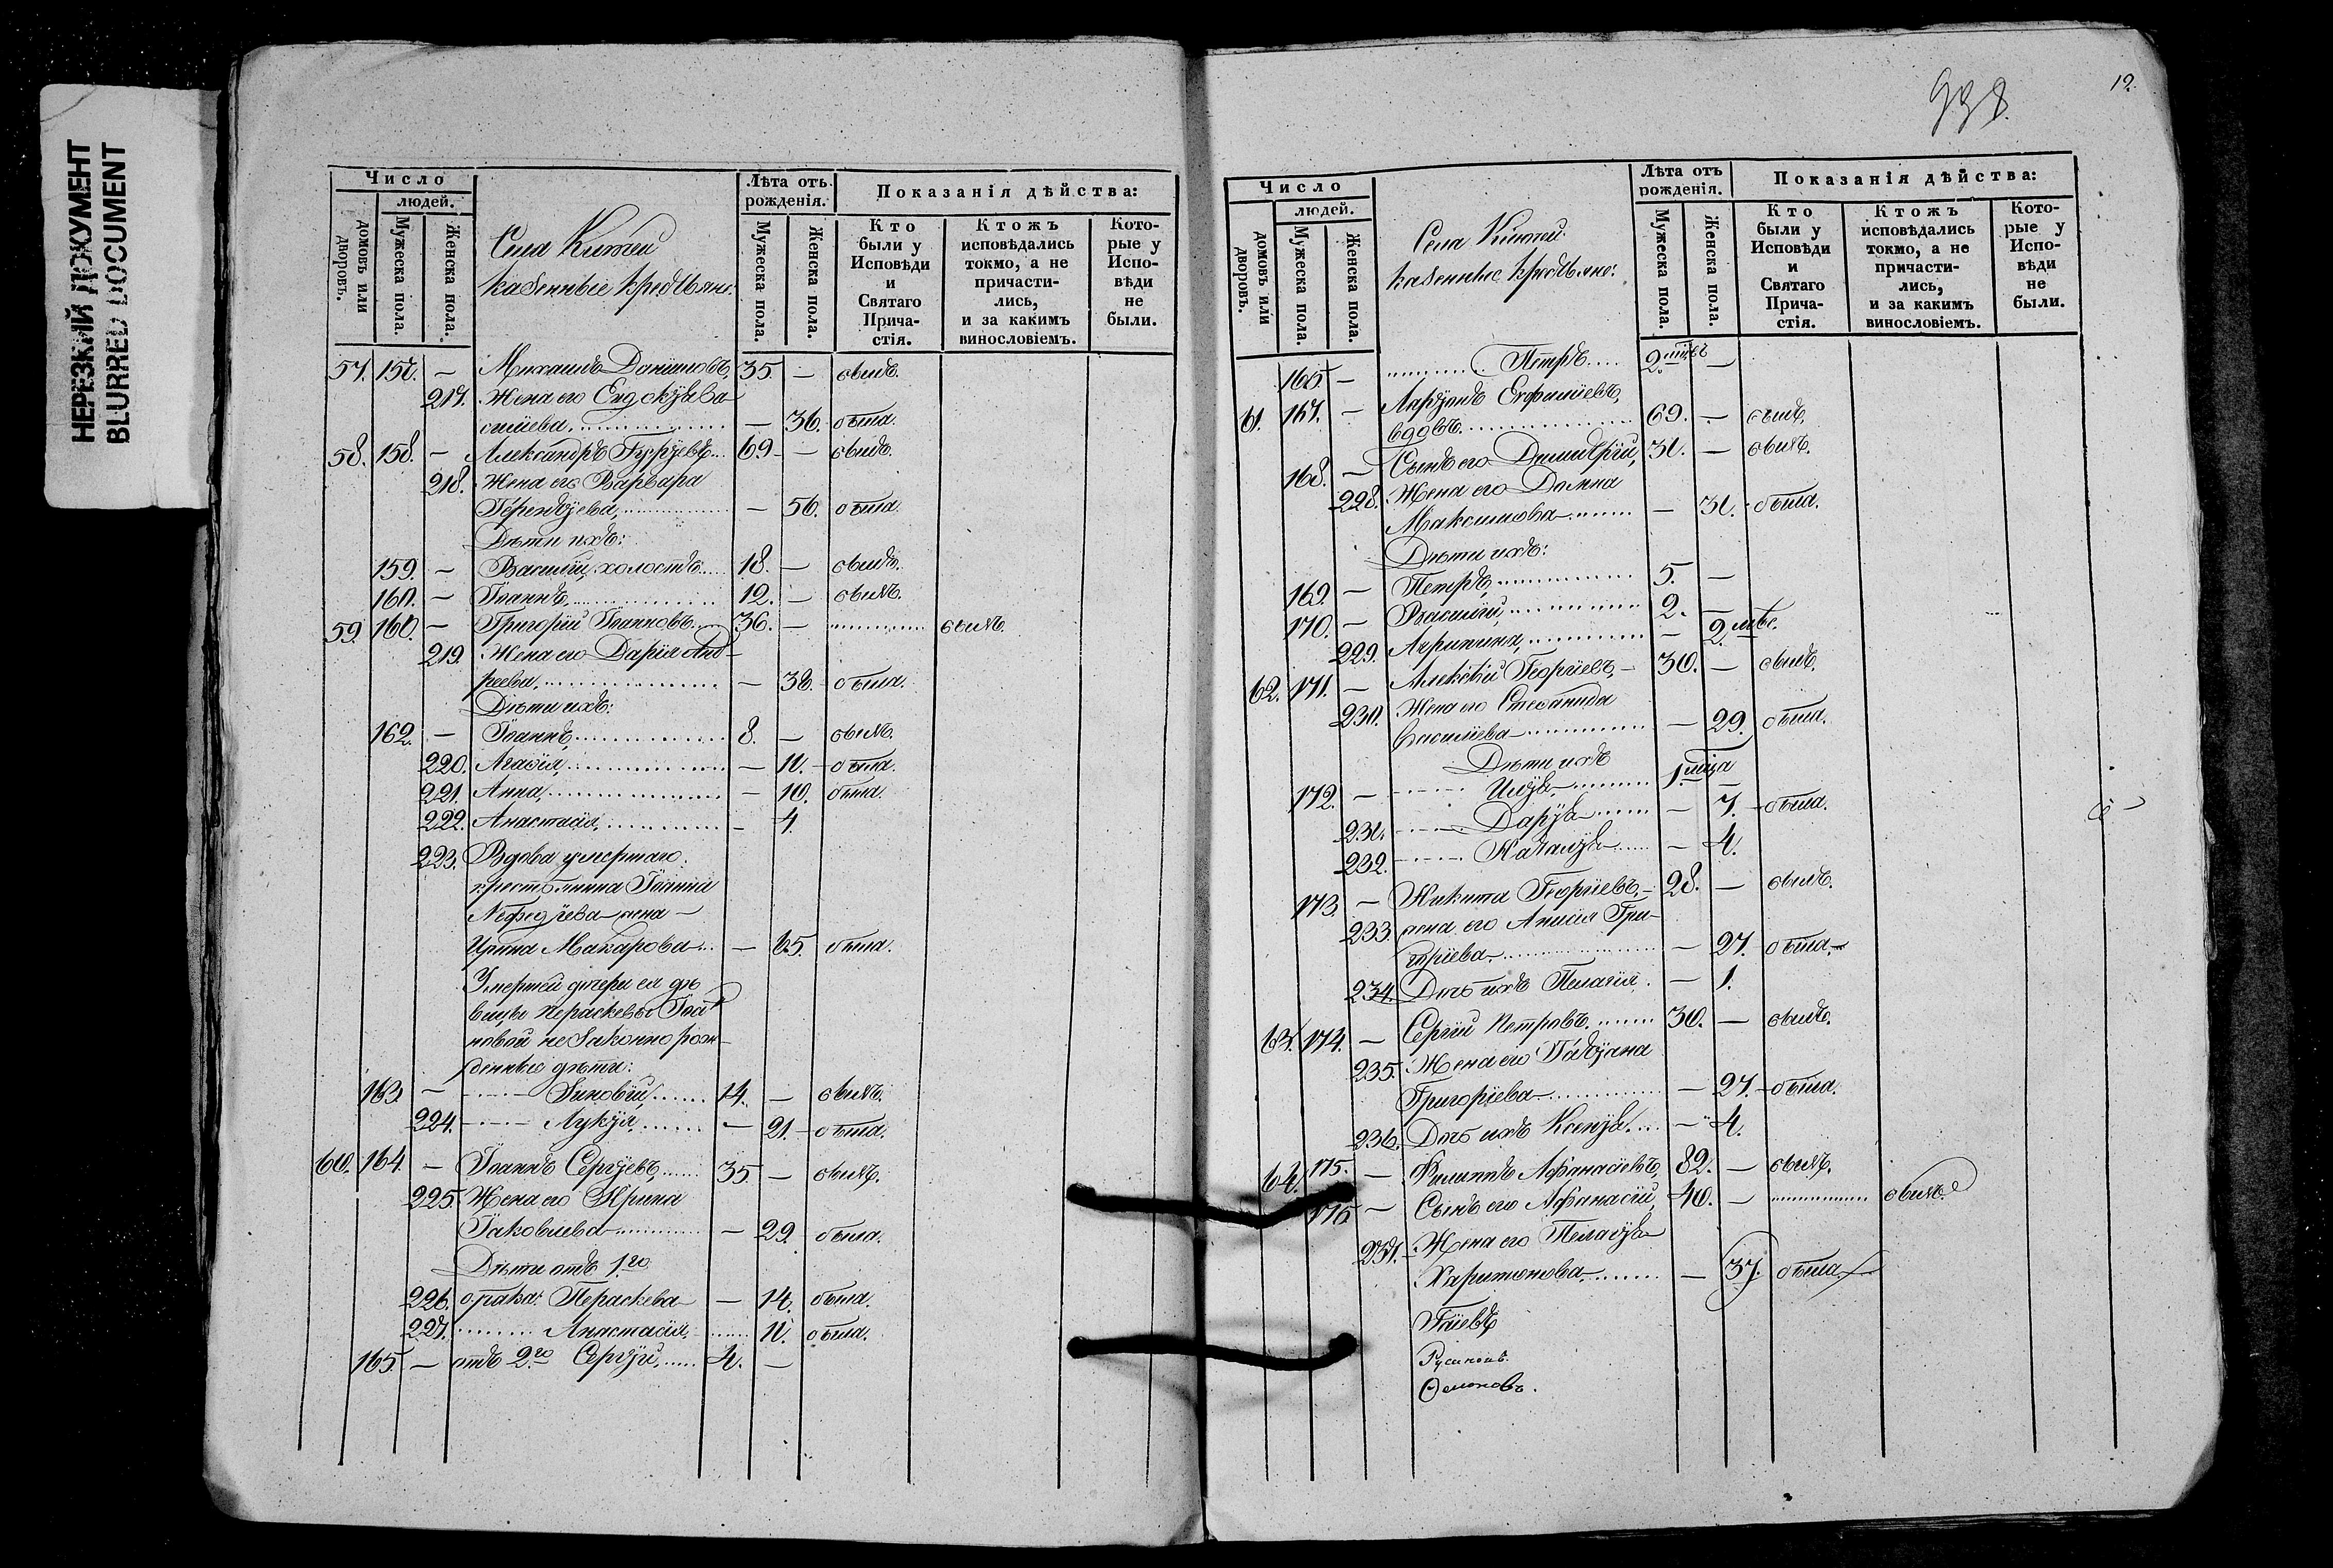 НЕРЕЗКИЙ ДОКУМЕНТ
BLURRED DOCUMENT
Число
людей.
домовъ или дворовъ.
Мужеска пола.
Женска пола.
Села
казенные крестьяне.
Лѣта отъ рожденія.
Мужеска пола.
Женска пола.
Показанія дѣйства:
Кто были у Исповѣди и Святаго Прича-стія.
Ктожъ исповѣдались токмо, а не причасти-лись, и за какимъ винословіемъ.
Кото-рые у Испо-вѣди не были.
57. 157. — Михаилъ 35. — былъ.
217. Жена его Евдокія Ва-
силіева — 36. была.
58. 158. — Александръ 69 — былъ.
218. Жена его Варвара
Терентіева — 56. была.
Дѣти ихъ:
159. — Василій, холостъ 18. — былъ.
160. — Іоаннъ 12. — былъ.
59. 161. — Григорій Іоанновъ 36. — былъ.
219. Жена его Дарія Анд-
реева — 38. была.
Дѣти ихъ:
162. — Іоаннъ 8. — былъ.
220. Агафія — 11. была.
221. Анна — 10. была.
222. Анастасія — 4.
223. Вдова умершаго
крестьянина Іоанна
Мефодіева жена
Ирина Макарова — 65. была.
Умершей дочери ея дѣ-
вицы Параскевы Іоан-
новой незаконно рож-
денные дѣти:
163. — Зиновій 14. — былъ.
224. Лукія — 21. была.
60. 164. — Іоаннъ Сергіевъ 35 — былъ.
225. Жена его Ирина
Іаковлева — 29. была.
Дѣти отъ 1го
226. брака: Параскева — 14. была.
227. Анастасія 11. была.
165. — отъ 2го Сергій 4. —
938.
12.
Число
людей.
домовъ или дворовъ.
Мужеска пола.
Женска пола.
Села
казенные крестьяне.
Лѣта отъ рожденія.
Мужеска пола.
Женска пола.
Показанія дѣйства:
Кто были у Исповѣди и Святаго Прича-стія.
Ктожъ исповѣдались токмо, а не причасти-лись, и за какимъ винословіемъ.
Кото-рые у Испо-вѣди не были.
166. — Петръ 2. —
61. 167. — Евфиміевъ,
вдовъ 69. — былъ.
168. — Сынъ его Димитрій 31. — былъ.
228. Жена его Домна
Максимова — 31. была.
Дѣти ихъ:
169. — Петръ 5. —
170. — Василій 2. —
229. Агрипина — 2.
62. 171. — Алексій Георгіевъ 30. — былъ.
230. Жена его Стефанида
Василіева — 29. была.
Дѣти ихъ
172. — Илія 1.
231. Дарія — 7. была.
232. Наталія — 4.
173. — Никита Георгіевъ 28. — былъ.
233. жена его Анисія Гри-
горіева — 27. была.
234. Дочь ихъ Пелагія — 1.
63. 174. — Сергій Петровъ 30. — былъ.
235. Жена его Татіана
Григоріева — 27. была.
236. Дочь ихъ Ксенія — 4.
64. 175. — Филиппъ Афанасіевъ 82. — былъ.
176 — Сынъ его Афанасій 40. — былъ.
237. Жена его Пелагія
Харитонова — 37. была.